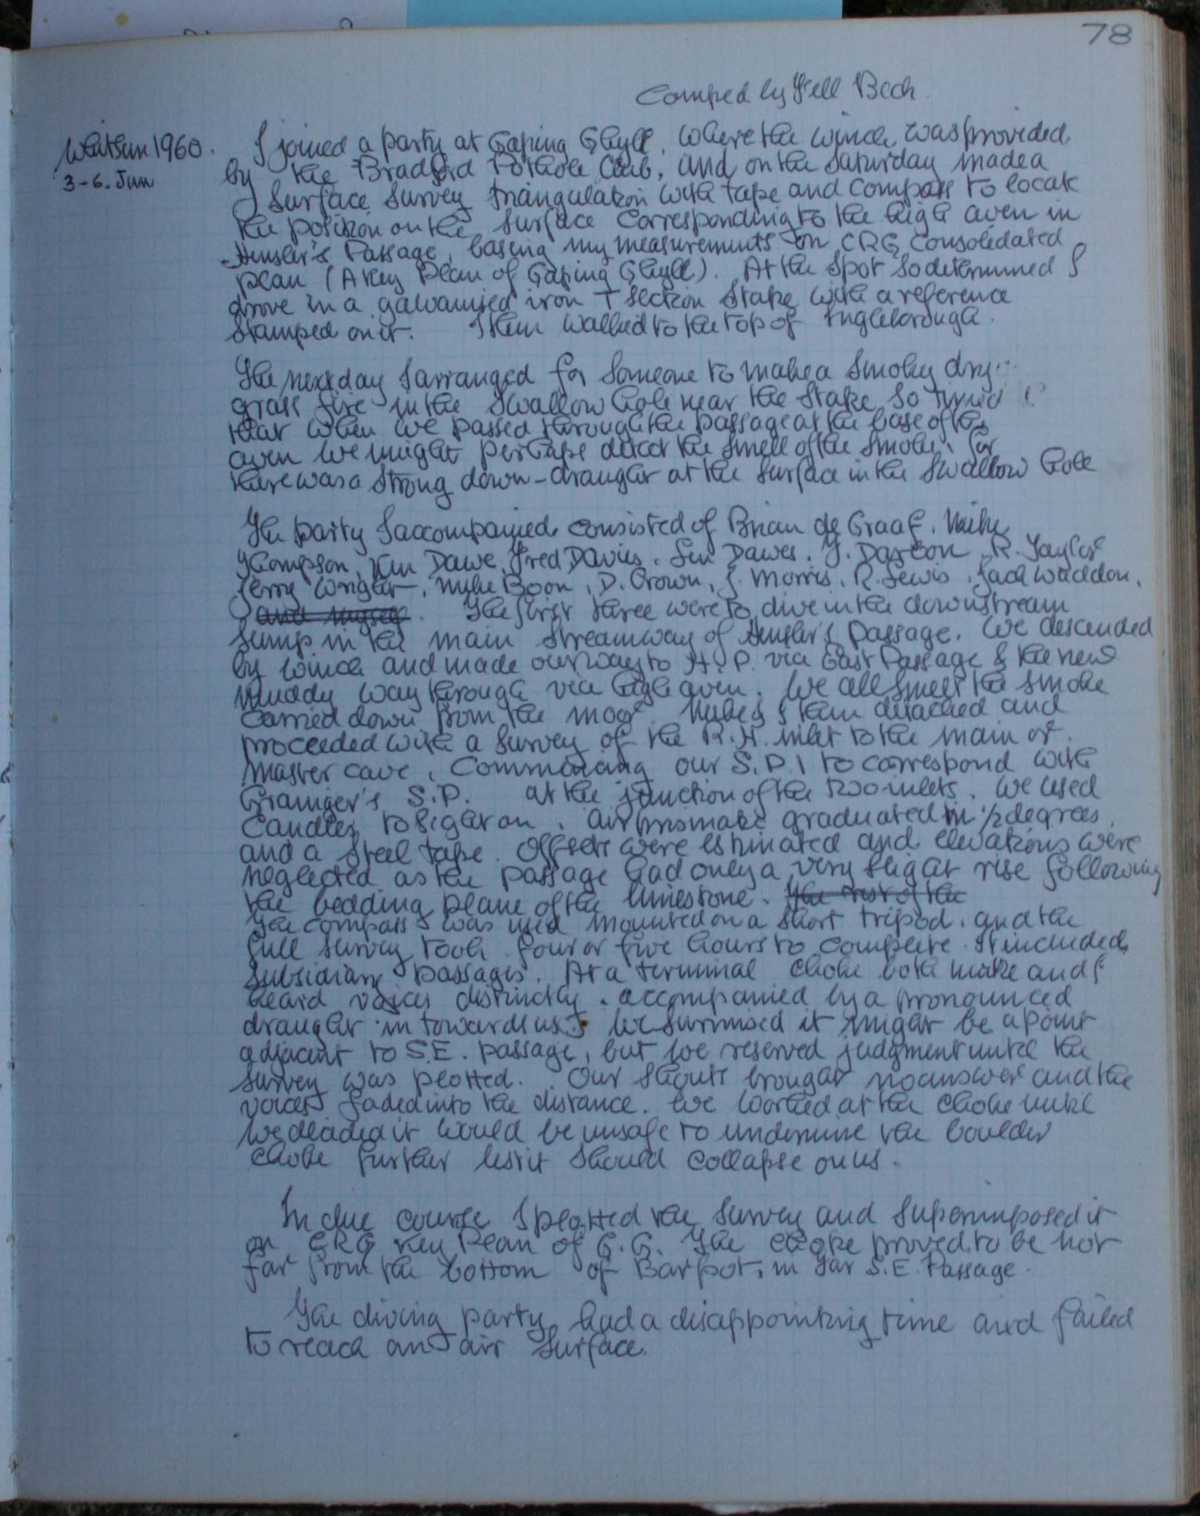 78
Camped by Fell Beck
Whitsun 1960.
3-6. Jun
I joined a party at Gaping Ghyll, where the winch was provided
by the Bradford Pothole Club, and on the Saturday made a
surface survey triangulation with tape and compass to locate
the position on the surface corresponding to the high aven in
Hensler's Passage, basing my measurements on CRG Consolidated
plan (A Key Plan of Gaping Ghyll). At the spot so determined I
drove in a galvanised iron T section stake with a reference
stamped on it. I then walked to the top of Ingleborough.
The next day I arranged for someone to make a smokey dry
grass fire in the swallow hole near the stake so timed
that when we passed through the passage at the base of the
aven we might perhaps detect the smell of the smoke, for
there was a strong down-draught at the surface in the swallow hole
The party I accompanied consisted of Brian de Graaf, Mike
Thompson, Ken Dawe, Fred Davies, Jim Dawes, J. R. Taylor
Terry Wright, Mike Boon, D. Crown, J. Morris, R. Lewis, Jack Waddon,
and myself. The first three were to dive in the downstream
sump in the main streamway of Hensler's Passage. We descended
by winch and made our way to H.P. via East Passage & the new
muddy way through via high aven. We all smelt the smoke
carried down from the moor. Mike & I then detached and
proceeded with a survey of the R.H. inlet to the main or
master cave, commencing our S.P.1 to correspond with
Grainger's S.P. at the junction of the two inlets. We used
candles to sight on, a prismatic graduated in 1/2 degrees,
and a steel tape. Offsets were estimated and elevations were
neglected as the passage had only a very slight rise following
the bedding plane of the limestone. The rest of the
The compass was used mounted on a short tripod, and the
full survey took four or five hours to complete. It included
subsidiary passages. At a terminal choke both Mike and I
heard voices distinctly, accompanied by a pronounced
draught in towards us. We surmised it might be a point
adjacent to S.E. passage, but we reserved judgment until the
survey was plotted. Our shouts brought no answer and the
voices faded into the distance. We worked at the choke until
we decided it would be unsafe to undermine the boulder
choke further lest it should collapse on us.
In due course I plotted the survey and superimposed it
on CRG Key Plan of G.G. The choke proved to be not
far from the bottom of Bar Pot, in far S.E. Passage.
The diving party had a disappointing time and failed
to reach an air surface.